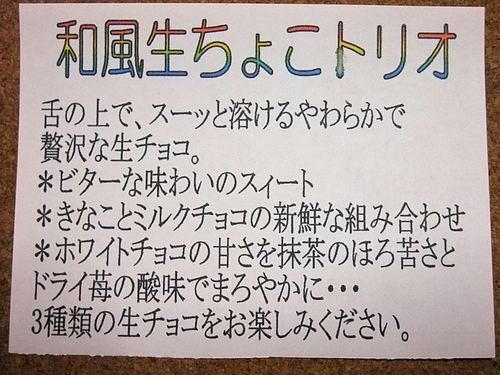 和風生ちょこトリオ
舌の上で、スーッと溶けるやわらかで
贅沢な生チョコ。
＊ビターな味わいのスィート
＊きなことミルクチョコの新鮮な組み合わせ
＊ホワイトチョコの甘さを抹茶のほろ苦さと
ドライ苺の酸味でまろやかに・・・
3種類の生チョコをお楽しみください。